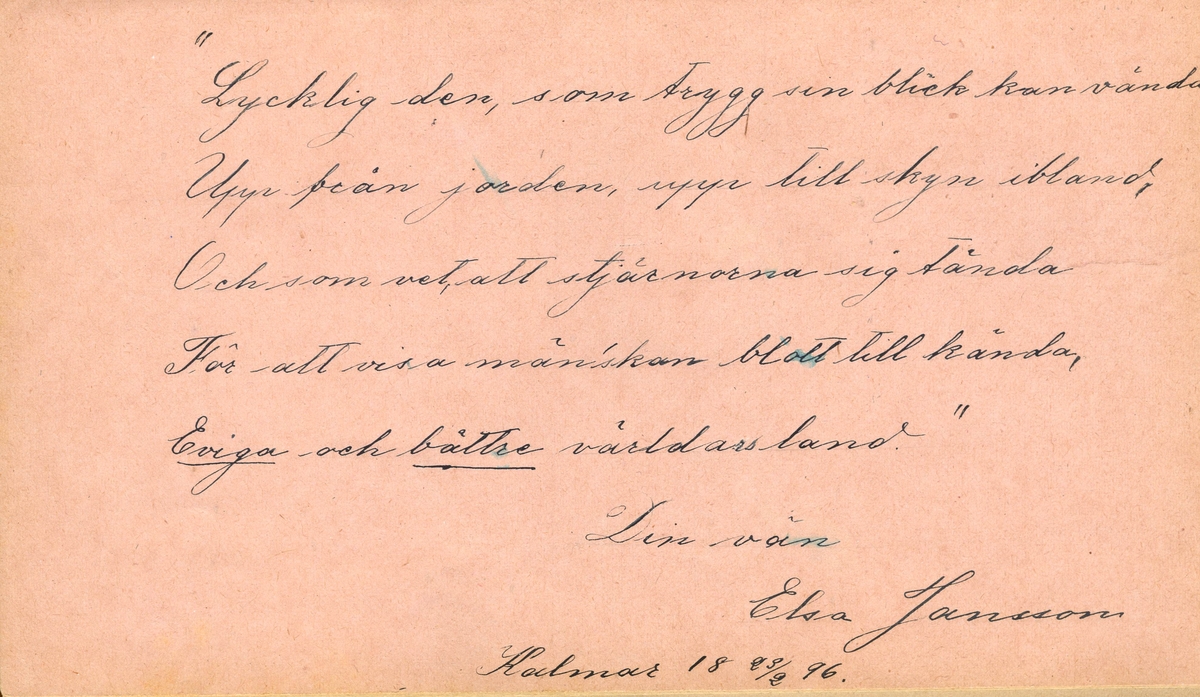 "Lycklig den, som trygg sin blick kan vända
Upp från jorden, upp till skyn ibland,
Och som vet, att stjärnorna sig tända
För att visa män'skan blott till kända,
Eviga och bättre världars land."
Din vän
Elsa Jansson
Kalmar 18 23/2 96.